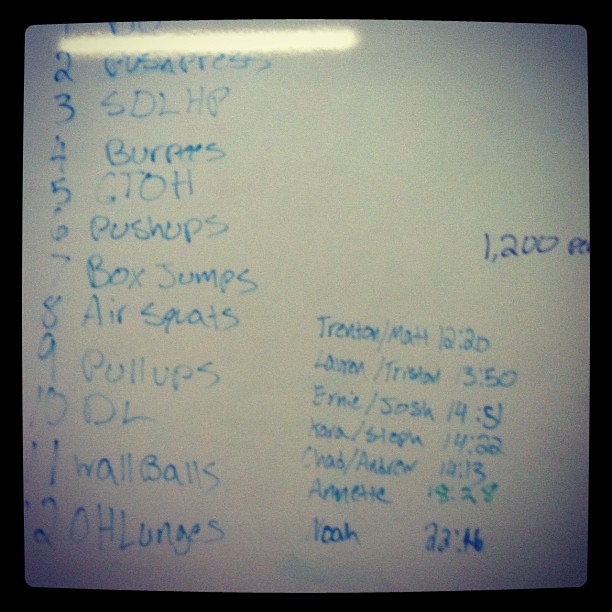 1
2 Pushpress
3 SDLHP
4 Burpees
5 GTOH
6 Pushups
7 Box Jumps
8 Air Squats
9 Pullups
10 DL
11 Wall Balls
12 OH Lunges
1,200
Trenton/Matt 12:20
Lauren/Tristan 13:50
Ernie/Josh 14:51
Kara/Steph 14:22
Chad/Andrew 14:13
Annette 18:28
Noah 22:16